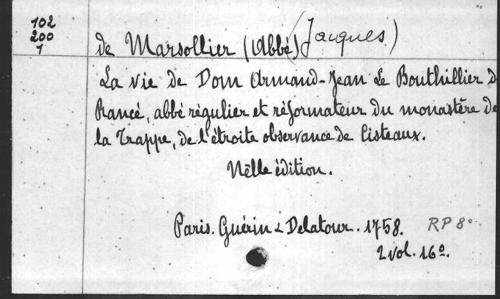 102
200
1
de Marsollier (Abbé) (Jacques)
La vie de Dom Armand-Jean Le Bouthillier d
Rancé, abbé régulier et réformateur du monastère de
la Trappe, de l'étroite observance de Cisteaux.
Nelle édition.
Paris. Guérin & Delatour. 1758. RP 8°
2 vol. 16°.